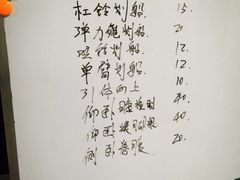 杠铃划船 15.
弹力绳划船 20
哑铃划船 12.
单臂划船 12.
引体向上 10.
仰卧 40.
仰卧 40.
侧卧卷腹 20.